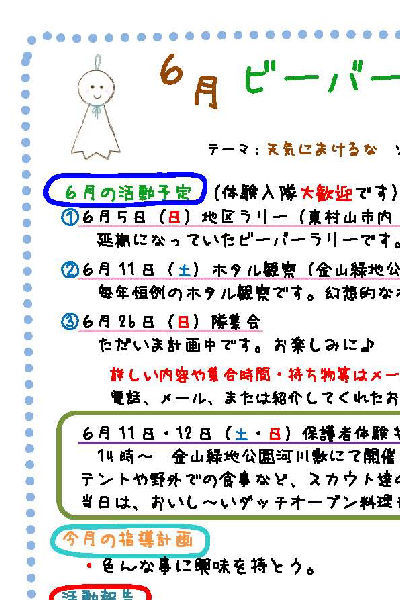 6月 ビーバー
テーマ：天気にまけるな
6月の活動予定 (体験入隊大歓迎です)
①6月5日（日）地区ラリー（東村山市内
延期になっていたビーバーラリーです。
②6月11日（土）ホタル観察（金山緑地公
毎年恒例のホタル観察です。幻想的な
③6月26日（日）隊集会
ただいま計画中です。お楽しみに♪
詳しい内容や集合時間・持ち物等はメー
電話、メール、または紹介してくれたお
6月11日・12日（土・日）保護者体験
14時～ 金山緑地公園河川敷にて開催
テントや野外での食事など、スカウト達の
当日は、おいし～いダッチオーブン料理
今月の指導計画
・色んな事に興味を持とう。
活動報告